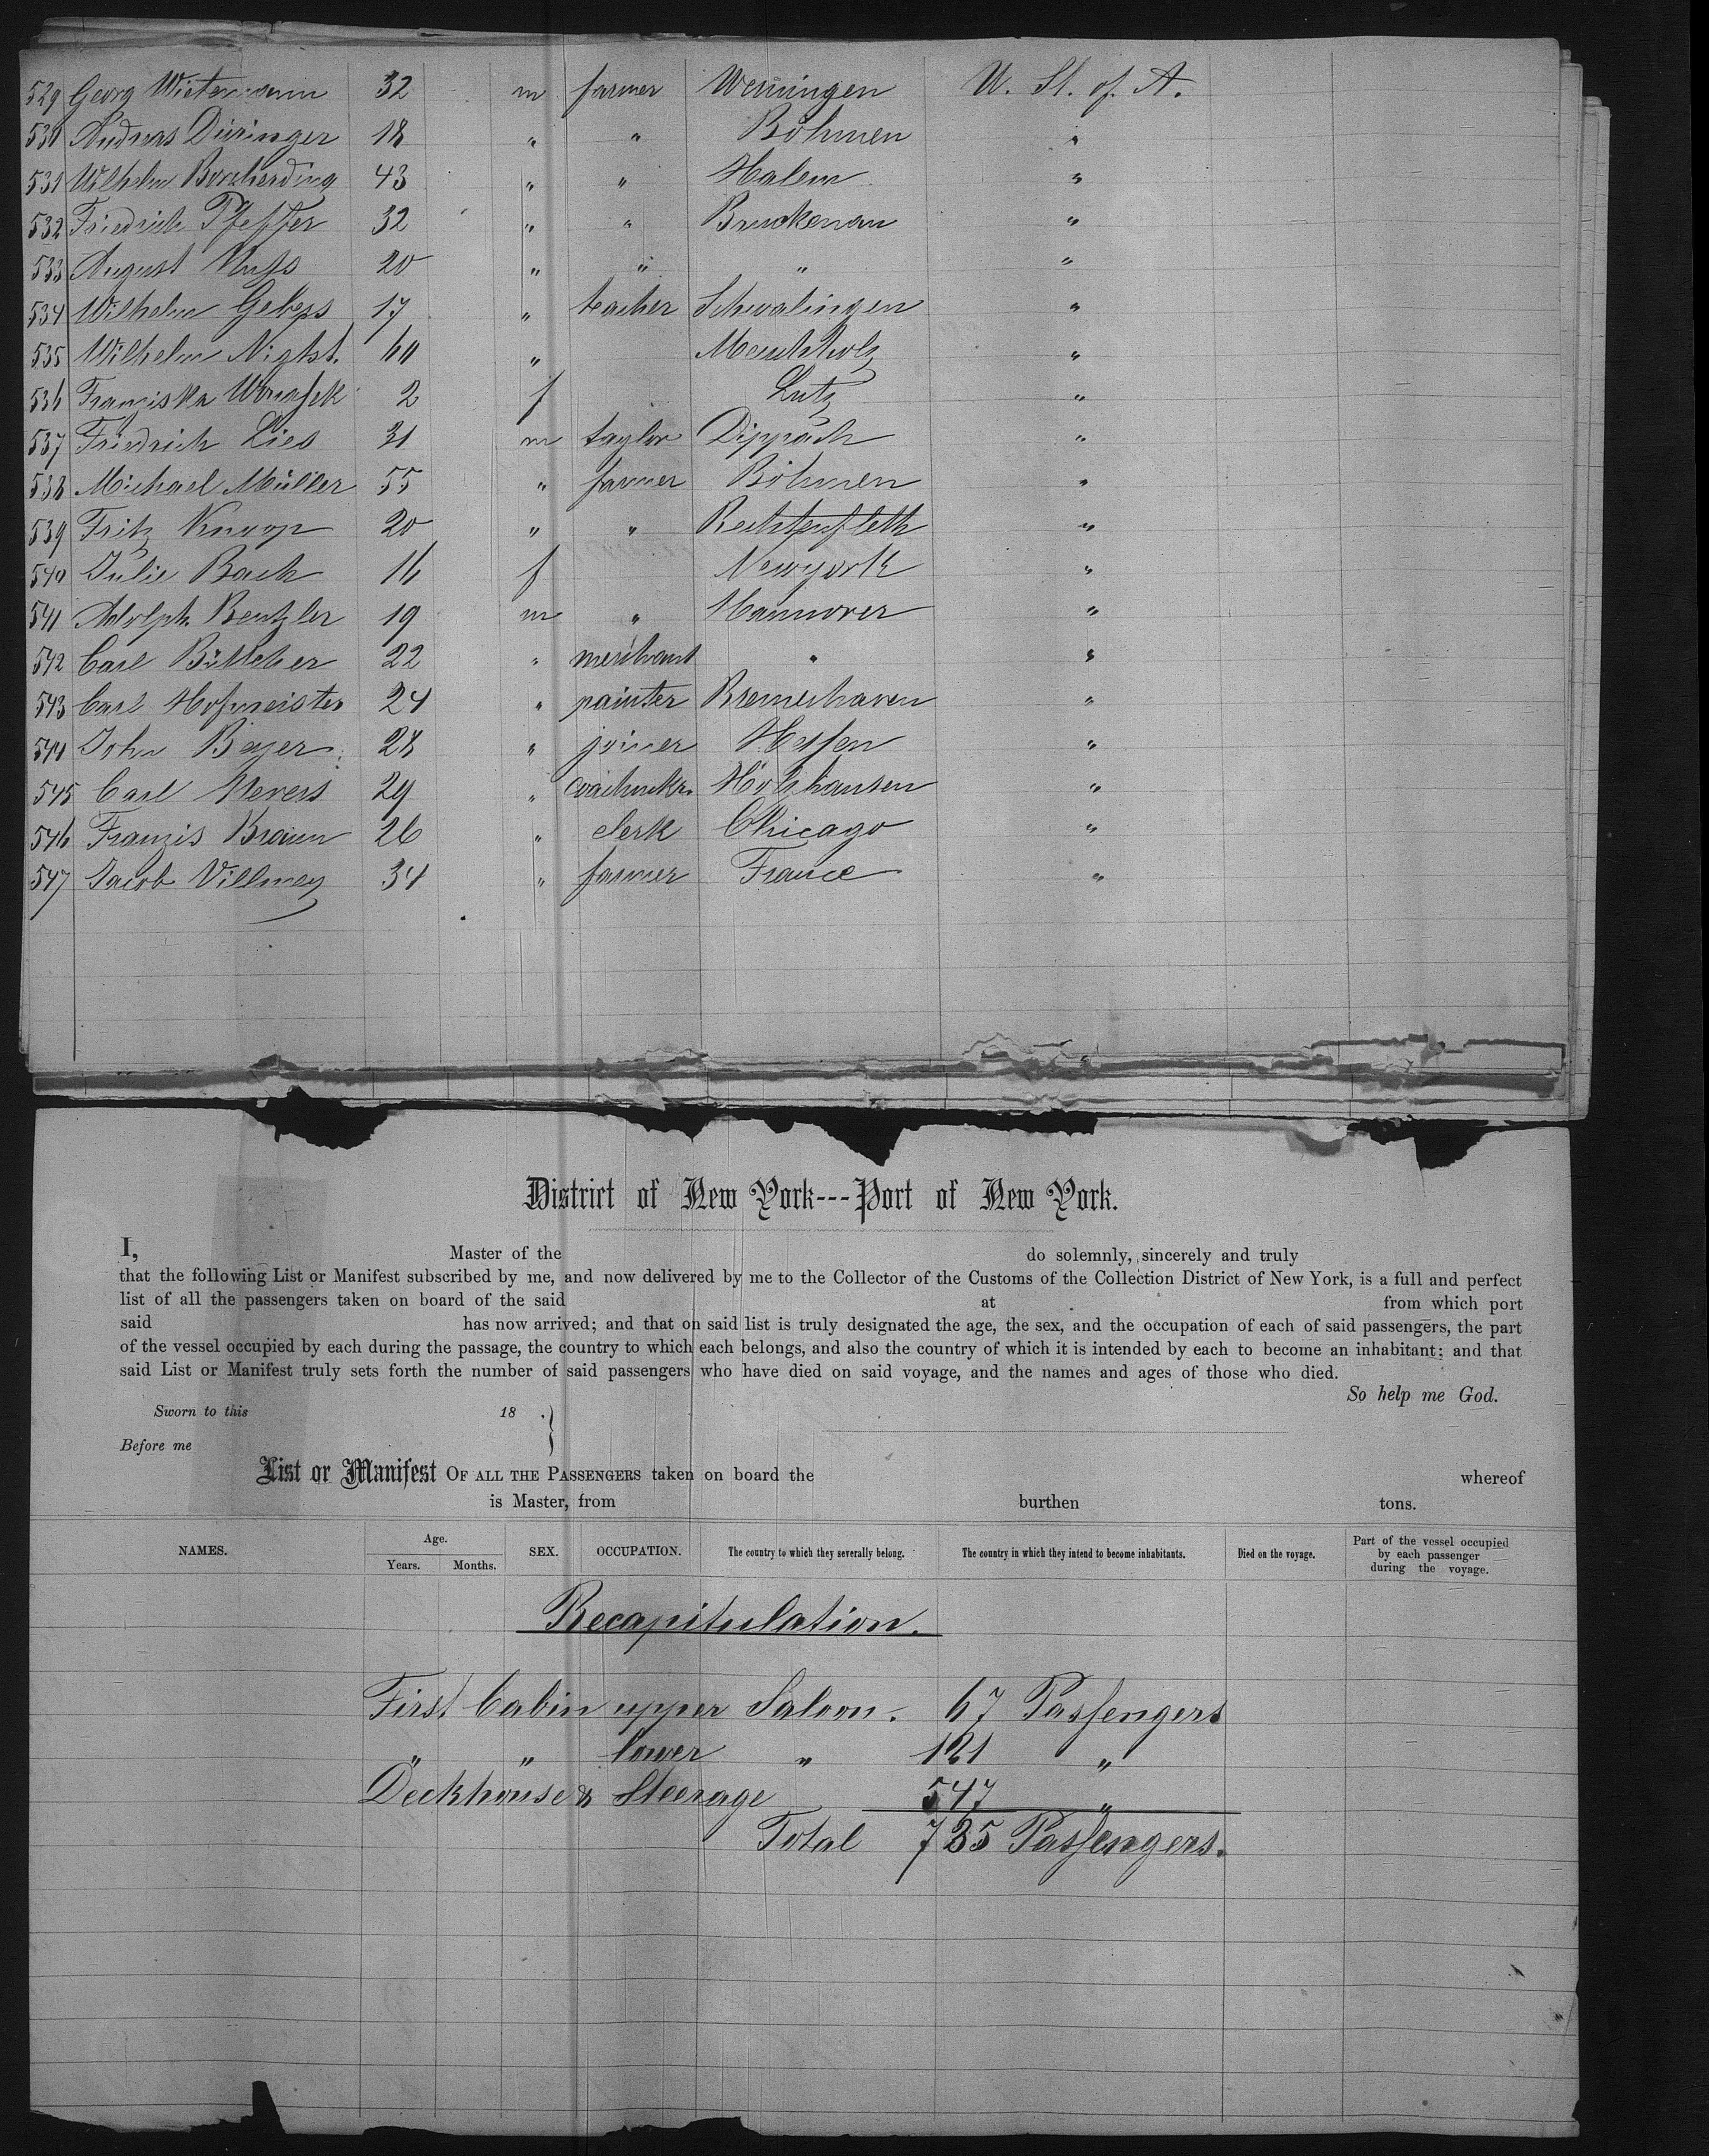 529 Georg Wistermann 32 m farmer Wenningen U. St. of A.
530 Andreas Düringer 18 " " Böhmen "
531 Wilhelm Borcherding 43 " " Halem "
532 Friedrich Pfeffer 32 " " Bruckenau "
533 August 20 " " " "
534 Wilhelm 17 " teacher Schwalingen "
535 Wilhelm Night. 60 " "
536 Franziska 2 f Lutz "
537 Friedrich Lies 31 m taylor Dippach "
538 Michael Müller 55 " farmer Böhmen "
539 Fritz Knoop 20 " " Rechtenfleth "
540 Julie Bach 16 f Newyork "
541 Adolph Rentzler 19 m " Hannover "
542 Carl Büttcher 22 " merchant " "
543 Carl Hofmeister 24 " painter Bremerhaven "
544 John Beyer 28 " joiner Hessen "
545 Carl Mevers 29 " coachmkr. Holzhausen "
546 Franzis Braun 26 " clerk Chicago "
547 Jacob Villmey 34 " farmer France "
District of New York---Port of New York.
I, Master of the do solemnly, sincerely and truly
that the following List or Manifest subscribed by me, and now delivered by me to the Collector of the Customs of the Collection District of New York, is a full and perfect
list of all the passengers taken on board of the said at from which port
said has now arrived; and that on said list is truly designated the age, the sex, and the occupation of each of said passengers, the part
of the vessel occupied by each during the passage, the country to which each belongs, and also the country of which it is intended by each to become an inhabitant; and that
said List or Manifest truly sets forth the number of said passengers who have died on said voyage, and the names and ages of those who died.
So help me God.
Sworn to this 18 .
Before me
List or Manifest OF ALL THE PASSENGERS taken on board the whereof
is Master, from burthen tons.
NAMES. Age. Years. Months. SEX. OCCUPATION. The country to which they severally belong. The country in which they intend to become inhabitants. Died on the voyage. Part of the vessel occupied by each passenger during the voyage.
Recapitulation.
First Cabin upper Saloon. 67 Passengers
" " lower " 121 "
Deckhouse & Steerage 547 "
Total 735 Passengers.